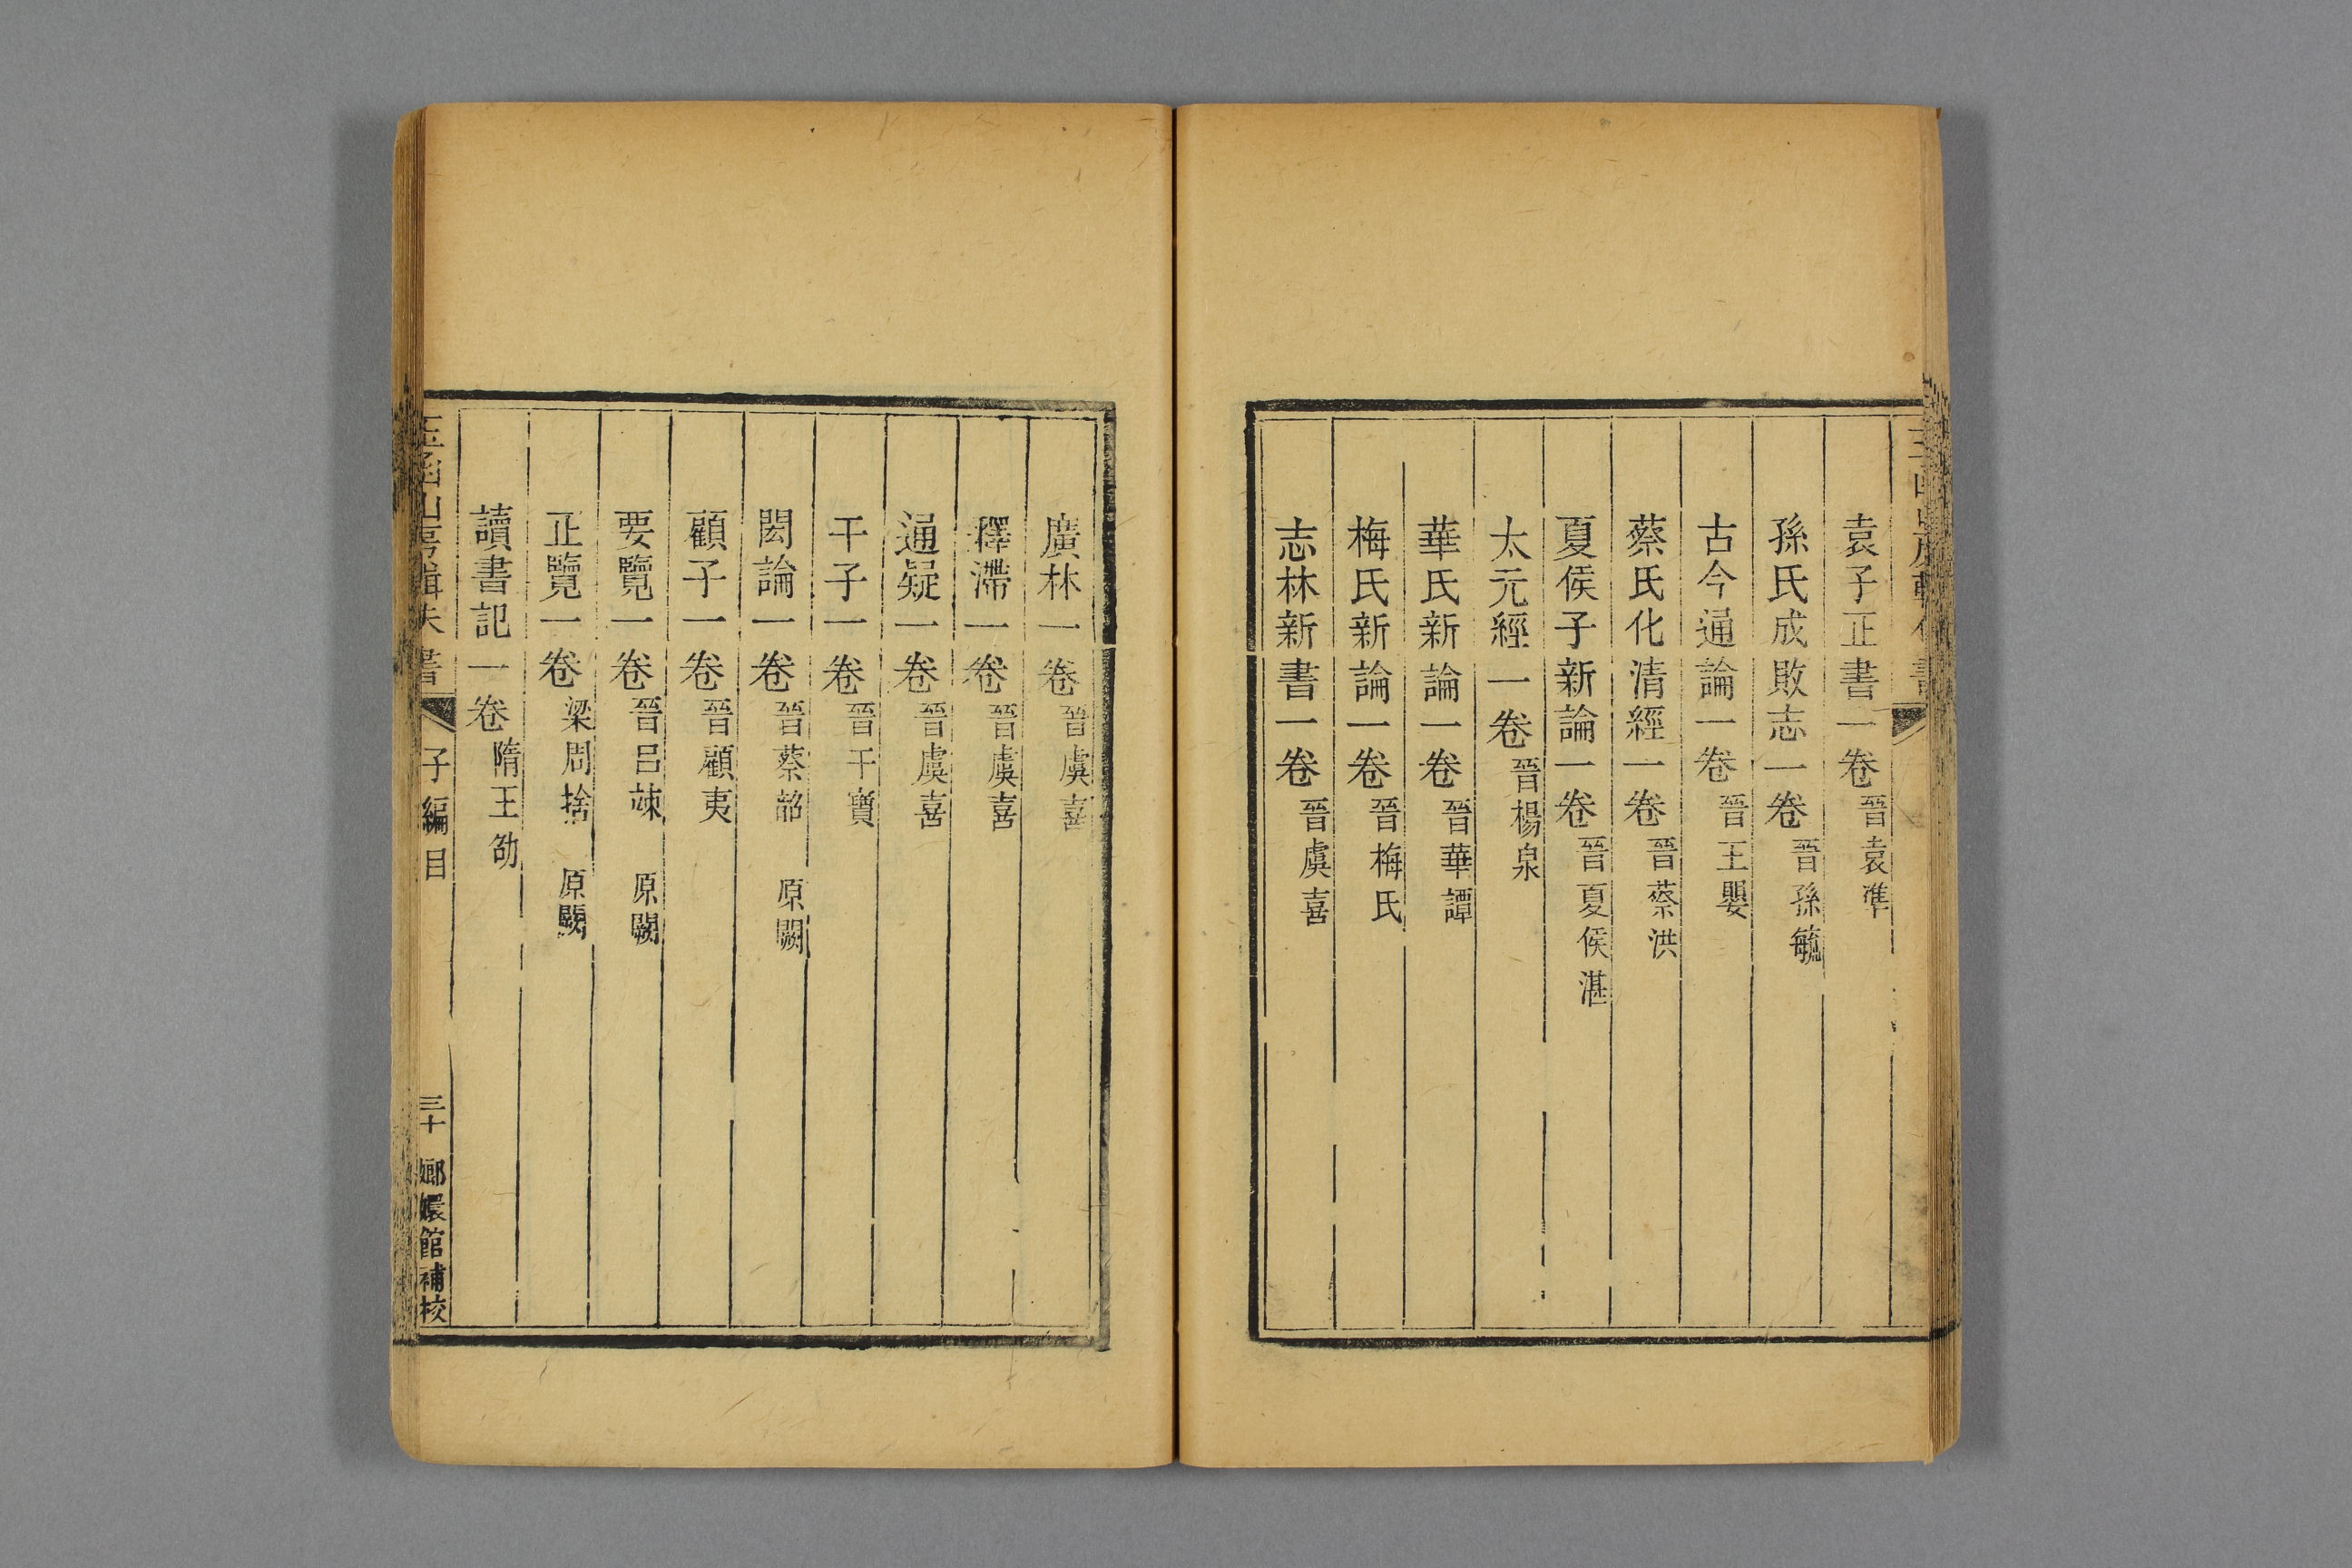 袁子正書一卷晉袁準
孫氏成敗志一卷晉孫毓
古今通論一卷晉王嬰
蔡氏化清經一卷晉蔡洪
夏侯子新論一卷晉夏侯湛
太元經一卷晉楊泉
華氏新論一卷晉華譚
梅氏新論一卷晉梅氏
志林新書一卷晉虞喜
廣林一卷晉虞喜
釋滯一卷晉虞喜
通疑一卷晉虞喜
干子一卷晉干寶
閎論一卷晉蔡韶 原闕
顧子一卷晉顧夷
要覽一卷晉呂竦 原闕
正覽一卷梁周捨 原闕
讀書記一卷隋王劭
玉函山房輯佚書 子編目 三十 嫏嬛館補校